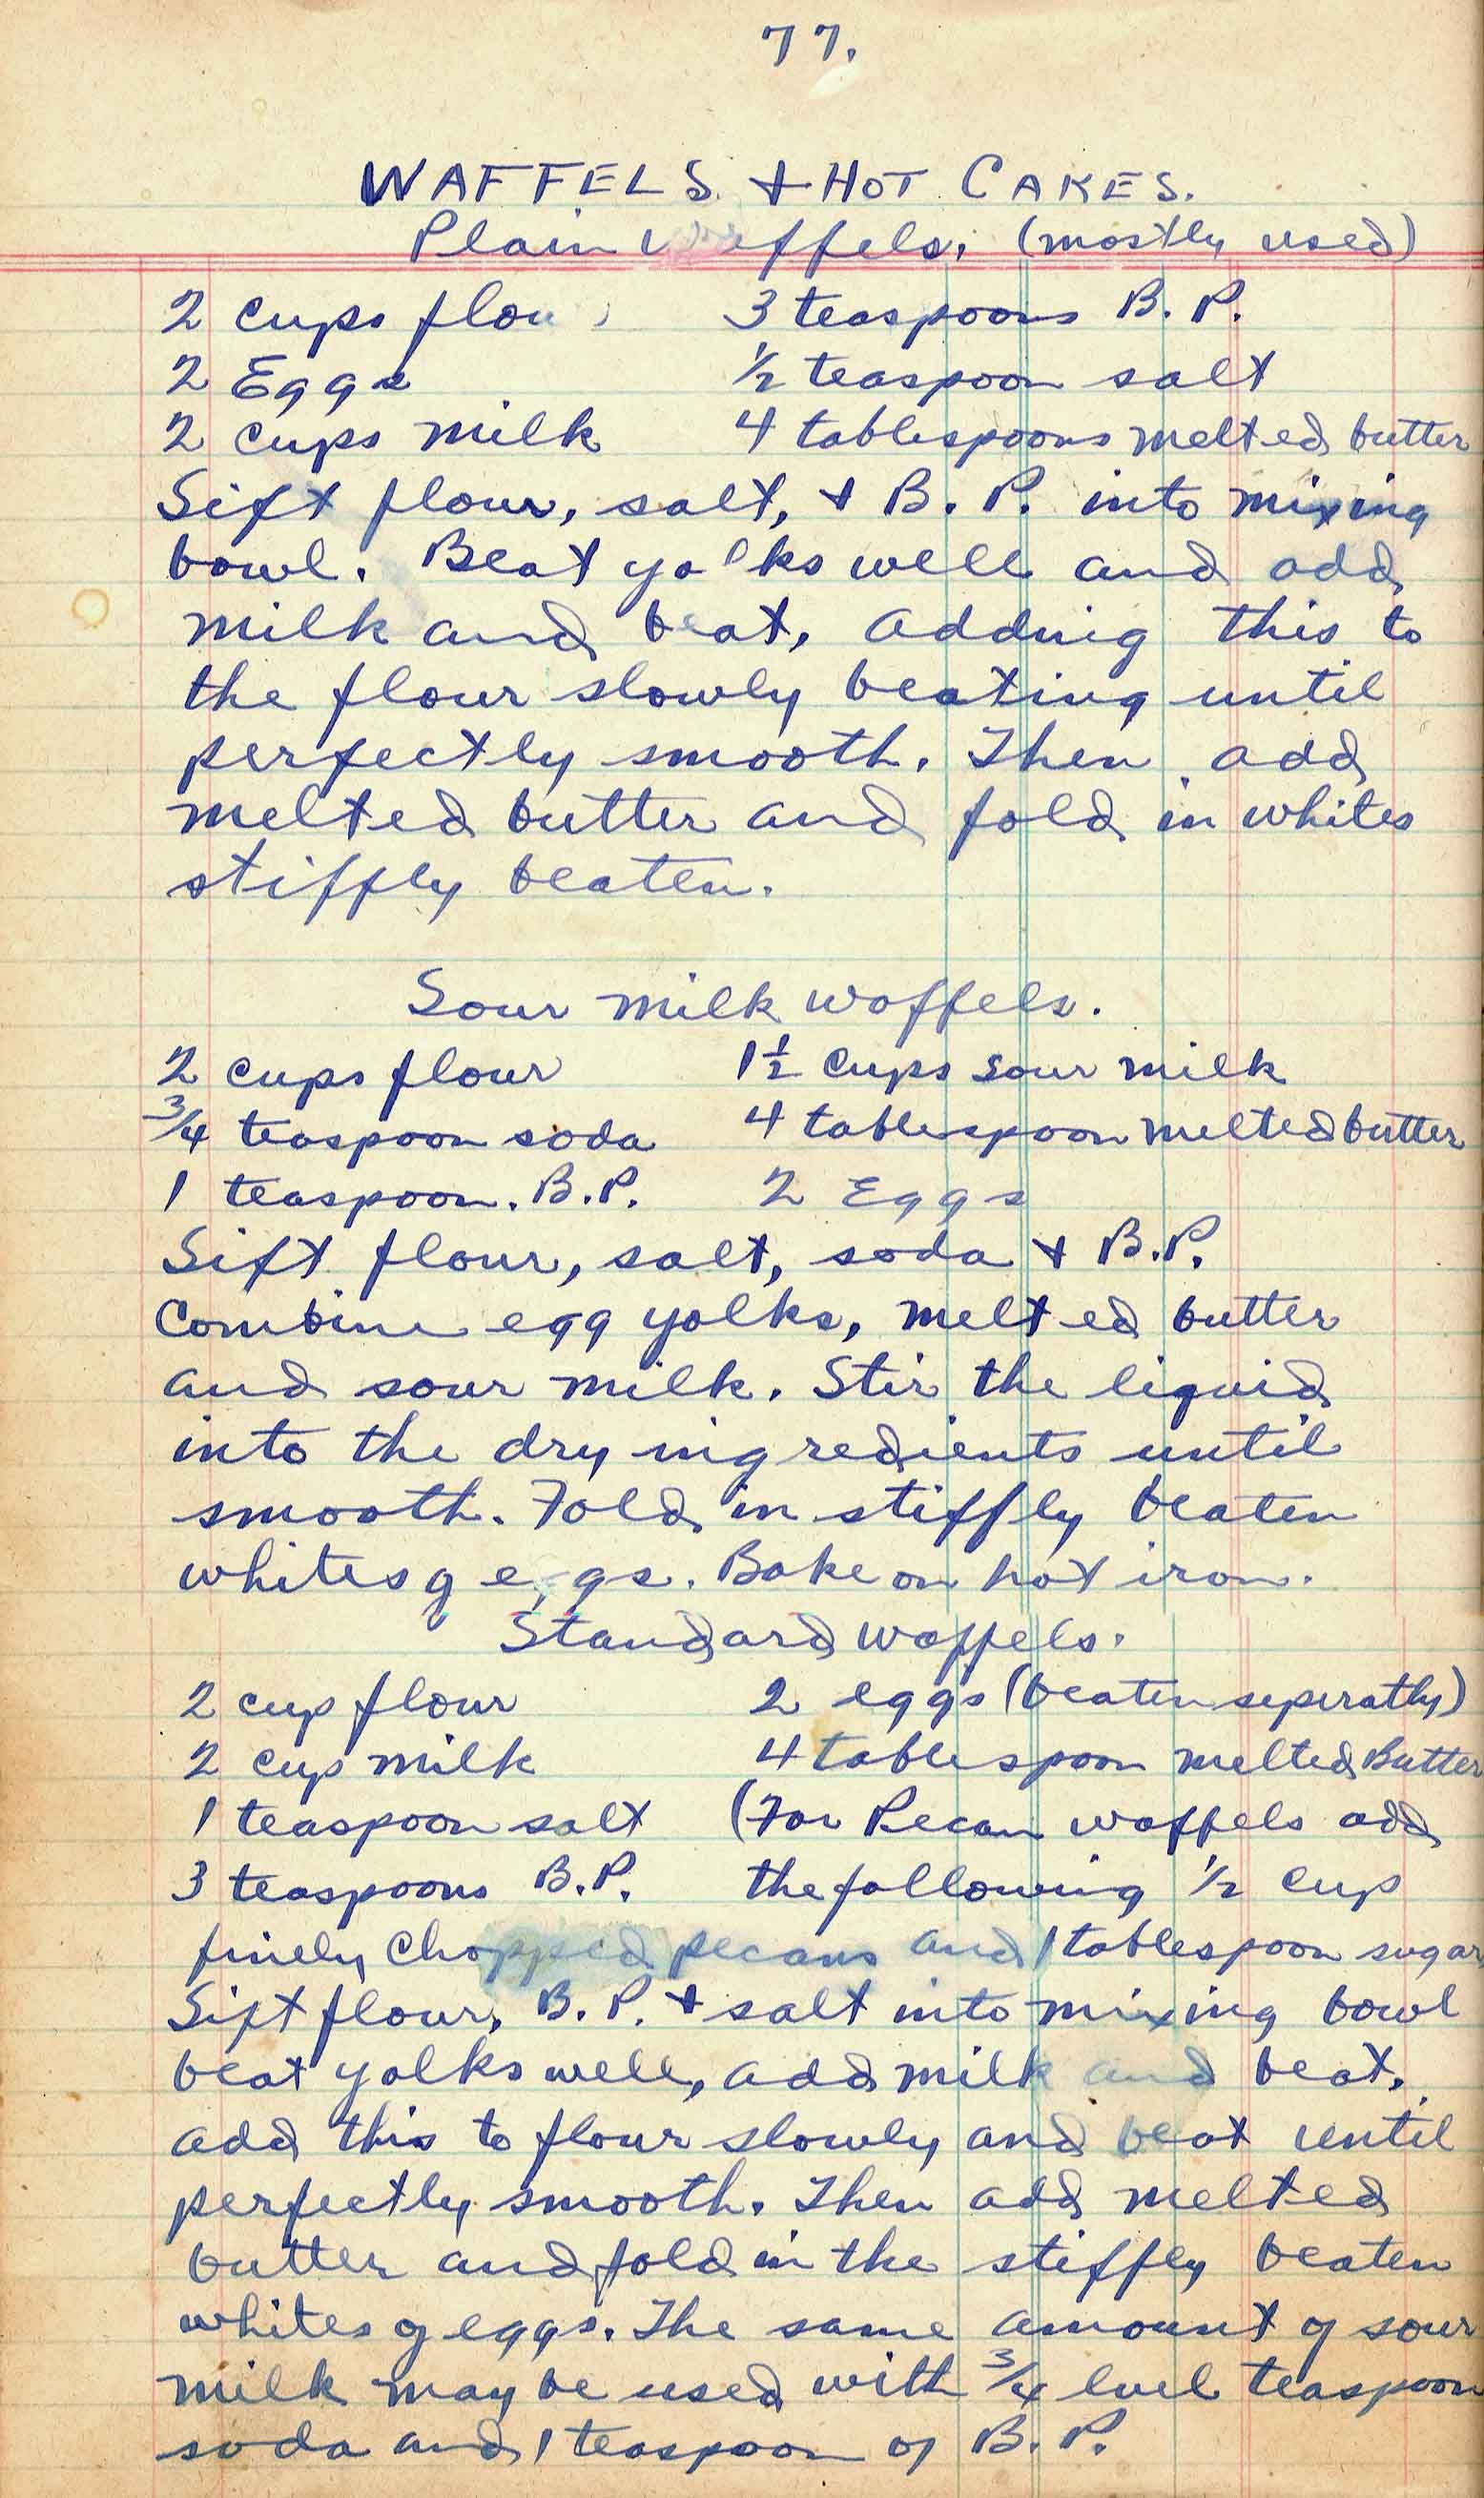 77.
WAFFELS & HOT CAKES.
Plain Waffels. (mostly used)
2 cups flour 3 teaspoons B. P.
2 Eggs ½ teaspoon salt
2 cups milk 4 tablespoons melted butter
Sift flour, salt, & B. P. into mixing
bowl. Beat yolks well and add
milk and beat, adding this to
the flour slowly beating until
perfectly smooth. Then add
melted butter and fold in whites
stiffly beaten.
Sour milk waffels.
2 cups flour 1½ cups sour milk
¾ teaspoon soda 4 tablespoon melted butter
1 teaspoon. B.P. 2 Eggs
Sift flour, salt, soda & B.P.
Combine egg yolks, melted butter
and sour milk. Stir the liquid
into the dry ingredients until
smooth. Fold in stiffly beaten
whites of eggs. Bake on hot iron.
Standard waffels.
2 cup flour 2 eggs (beaten seperatly)
2 cup milk 4 tablespoon melted Butter
1 teaspoon salt (For Pecan waffels add
3 teaspoons B.P. the following ½ cup
finely chopped pecans and 1 tablespoon sugar)
Sift flour, B. P. & salt into mixing bowl
beat yolks well, add milk and beat,
add this to flour slowly and beat until
perfectly smooth. Then add melted
butter and fold in the stiffly beaten
whites of eggs. The same amount of sour
milk may be used with ¾ level teaspoon
soda and 1 teaspoon of B. P.